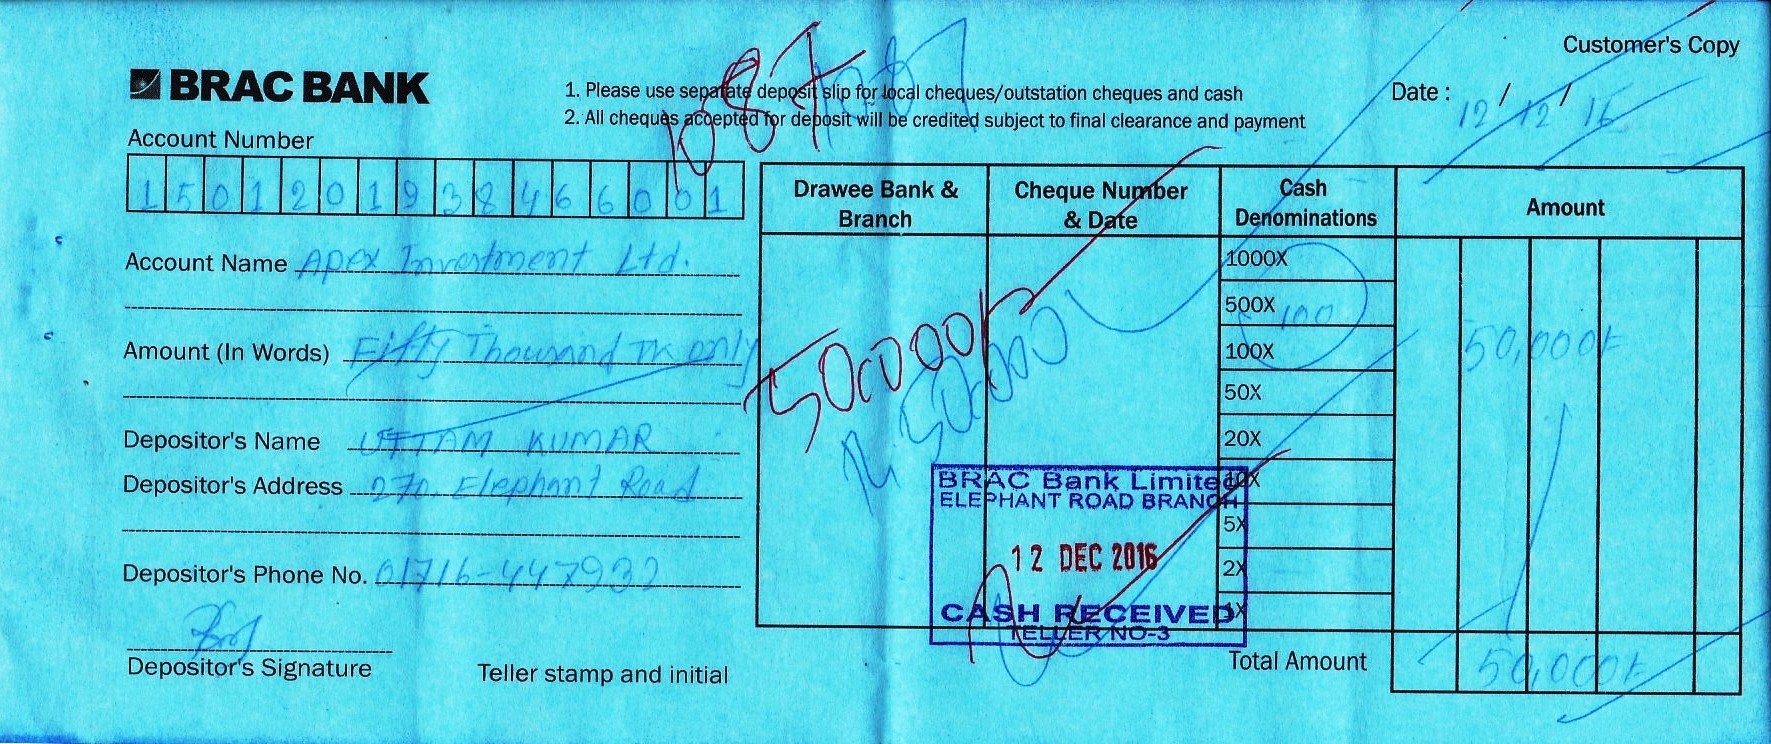 Customer's Copy
BRAC BANK
1. Please use separate deposit slip for local cheques/outstation cheques and cash
2. All cheques accepted for deposit will be credited subject to final clearance and payment
Date : 12/12/16
1087
Account Number
1501201938466001
Account Name Apex Investment Ltd.
Amount (In Words) Fifty Thousand TK only
Depositor's Name UTTAM KUMAR
Depositor's Address 270, Elephant Road
Depositor's Phone No. 01716-447932
Depositor's Signature
Teller stamp and initial
Drawee Bank & Branch
Cheque Number & Date
Cash Denominations
Amount
1000X
500X 100
100X 50,000/-
50X
20X
10X
5X
2X
1X
50000/-
50000
BRAC Bank Limited
ELEPHANT ROAD BRANCH
12 DEC 2016
CASH RECEIVED
TELLER NO-3
Total Amount 50,000/-